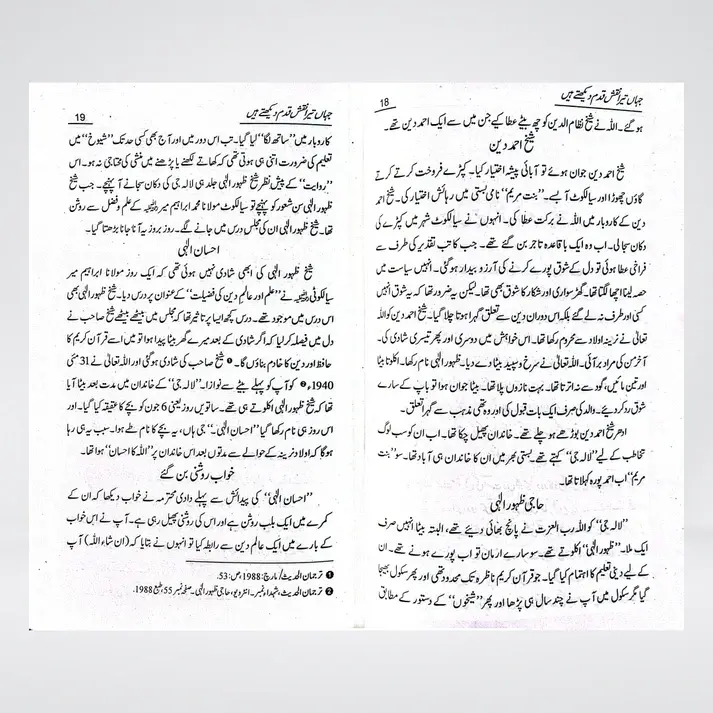 جہاں تیرا نقش قدم دیکھتے ہیں
18
ہو گئے۔ اللہ نے شیخ نظام الدین کو چھ بیٹے عطا کیے جن میں سے ایک احمد دین تھے۔
شیخ احمد دین
شیخ احمد دین جوان ہوئے تو آبائی پیشہ اختیار کیا۔ کپڑے فروخت کرتے کرتے
گاؤں چھوڑا اور سیالکوٹ آ بسے۔ ’’بنت مریم‘‘ نامی بستی میں رہائش اختیار کی۔ شیخ احمد
دین کے کاروبار میں اللہ نے برکت عطا کی۔ انہوں نے سیالکوٹ شہر میں کپڑے کی
دکان سجا لی۔ اب وہ ایک باقاعدہ تاجر بن گئے تھے۔ جب کاتب تقدیر کی طرف سے
فراخی عطا ہوئی تو دل کے شوق پورے کرنے کی آرزو بیدار ہو گئی۔ انہیں سیاست میں
حصہ لینا اچھا لگتا تھا۔ گھڑ سواری اور شکار کا شوق بھی تھا۔ لیکن یہ ضرور تھا کہ یہ شوق انہیں
کسی اور طرف نہ لے گئے بلکہ اس دوران دین سے تعلق گہرا ہوتا چلا گیا۔ شیخ احمد دین کو اللہ
تعالیٰ نے نرینہ اولاد سے محروم رکھا تھا۔ اس خواہش میں دوسری اور پھر تیسری شادی کی۔
آخر من کی مراد بر آئی۔ اللہ تعالیٰ نے سرخ و سپید بیٹا دے دیا۔ ظہور الٰہی نام رکھا۔ اکلوتا بیٹا
اور تین مائیں، گود سے نہ اترتا تھا۔ بہت نازوں پلا تھا۔ بیٹا جوان ہوا تو باپ کے سارے
شوق رد کر دیے۔ والد کی صرف ایک بات قبول کی اور وہ تھی مذہب سے گہرا تعلق۔
ادھر شیخ احمد دین بوڑھے ہو چلے تھے۔ خاندان پھیل چکا تھا۔ اب ان کو سب لوگ
تخاطب کے لیے ’’لالہ جی‘‘ کہتے تھے بستی بھر میں ان کا خاندان ہی آباد تھا۔ سو ’’بنت
مریم‘‘ اب احمد پورہ کہلاتا تھا۔
حاجی ظہور الٰہی
’’لالہ جی‘‘ کو اللہ رب العزت نے پانچ بھائی دیئے تھے، البتہ بیٹا انہیں صرف
ایک ملا۔ ’’ظہور الٰہی‘‘ اکلوتے تھے۔ سو سارے ارمان تو اب پورے ہونے تھے۔ ان
کے لیے دینی تعلیم کا اہتمام کیا گیا۔ جو قرآن کریم ناظرہ تک محدود تھی اور پھر سکول بھیجا
گیا مگر سکول میں آپ نے چند سال ہی پڑھا اور پھر ’’شیخوں‘‘ کے دستور کے مطابق
جہاں تیرا نقش قدم دیکھتے ہیں
19
کاروبار میں ’’ساتھ لگا‘‘ لیا گیا۔ تب اس دور میں اور آج بھی کسی حد تک ’’شیوخ‘‘ میں
تعلیم کی ضرورت اتنی ہی ہوتی تھی کہ کھاتے لکھنے یا پڑھنے میں منشی کی محتاجی نہ ہو۔ اس
’’روایت‘‘ کے پیش نظر شیخ ظہور الٰہی جلد ہی لالہ جی کی دکان سجانے آ پہنچے۔ جب شیخ
ظہور الٰہی سن شعور کو پہنچے تو سیالکوٹ مولانا محمد ابراہیم میر رحمہ اللہ کے علم و فضل سے روشن
تھا۔ شیخ ظہور الٰہی ان کی مجلس درس میں جانے لگے۔ روز بروز یہ آنا جانا بڑھتا گیا۔
احسان الٰہی
شیخ ظہور الٰہی کی ابھی شادی نہیں ہوئی تھی کہ ایک روز مولانا ابراہیم میر
سیالکوٹی رحمہ اللہ نے ’’علم اور عالم دین کی فضیلت‘‘ کے عنوان پر درس دیا۔ شیخ ظہور الٰہی بھی
اس درس میں موجود تھے۔ درس کچھ ایسا پر تاثیر تھا کہ مجلس میں بیٹھے بیٹھے شیخ صاحب نے
دل میں فیصلہ کر لیا کہ اگر شادی کے بعد میرے گھر بیٹا پیدا ہوا تو میں اسے قرآن کریم کا
حافظ اور دین کا خادم بناؤں گا۔ ❶ شیخ صاحب کی شادی ہو گئی اور اللہ تعالیٰ نے 31 مئی
1940ء ❷ کو آپ کو پہلے بیٹے سے نوازا۔ ’’لالہ جی‘‘ کے خاندان میں مدت بعد بیٹا آیا
تھا کہ شیخ ظہور الٰہی اکلوتے ہی تھے۔ ساتویں روز یعنی 6 جون کو بچے کا عقیقہ کیا گیا۔ اور
اس روز ہی نام رکھا گیا ’’احسان الٰہی۔‘‘ جی ہاں، یہ بچے کا نام طے ہوا۔ سبب یہ ہی رہا
ہوگا کہ اولاد نرینہ کے حوالے سے مدتوں بعد اس خاندان پر ’’اللہ کا احسان‘‘ ہوا تھا۔
خواب روشنی بن گئے
’’احسان الٰہی‘‘ کی پیدائش سے پہلے دادی محترمہ نے خواب دیکھا کہ ان کے
کمرے میں ایک بلب روشن ہے اور اس کی روشنی پھیل رہی ہے۔ آپ نے اس خواب
کے بارے میں ایک عالم دین سے رابطہ کیا تو انہوں نے بتایا کہ (ان شاء اللہ) آپ
❶ ترجمان الحدیث/ مارچ: 1988، ص: 53.
❷ ترجمان الحدیث، شہداء نمبر۔ انٹرویو، حاجی ظہور الٰہی۔ صفحہ نمبر 55، طبع 1988.